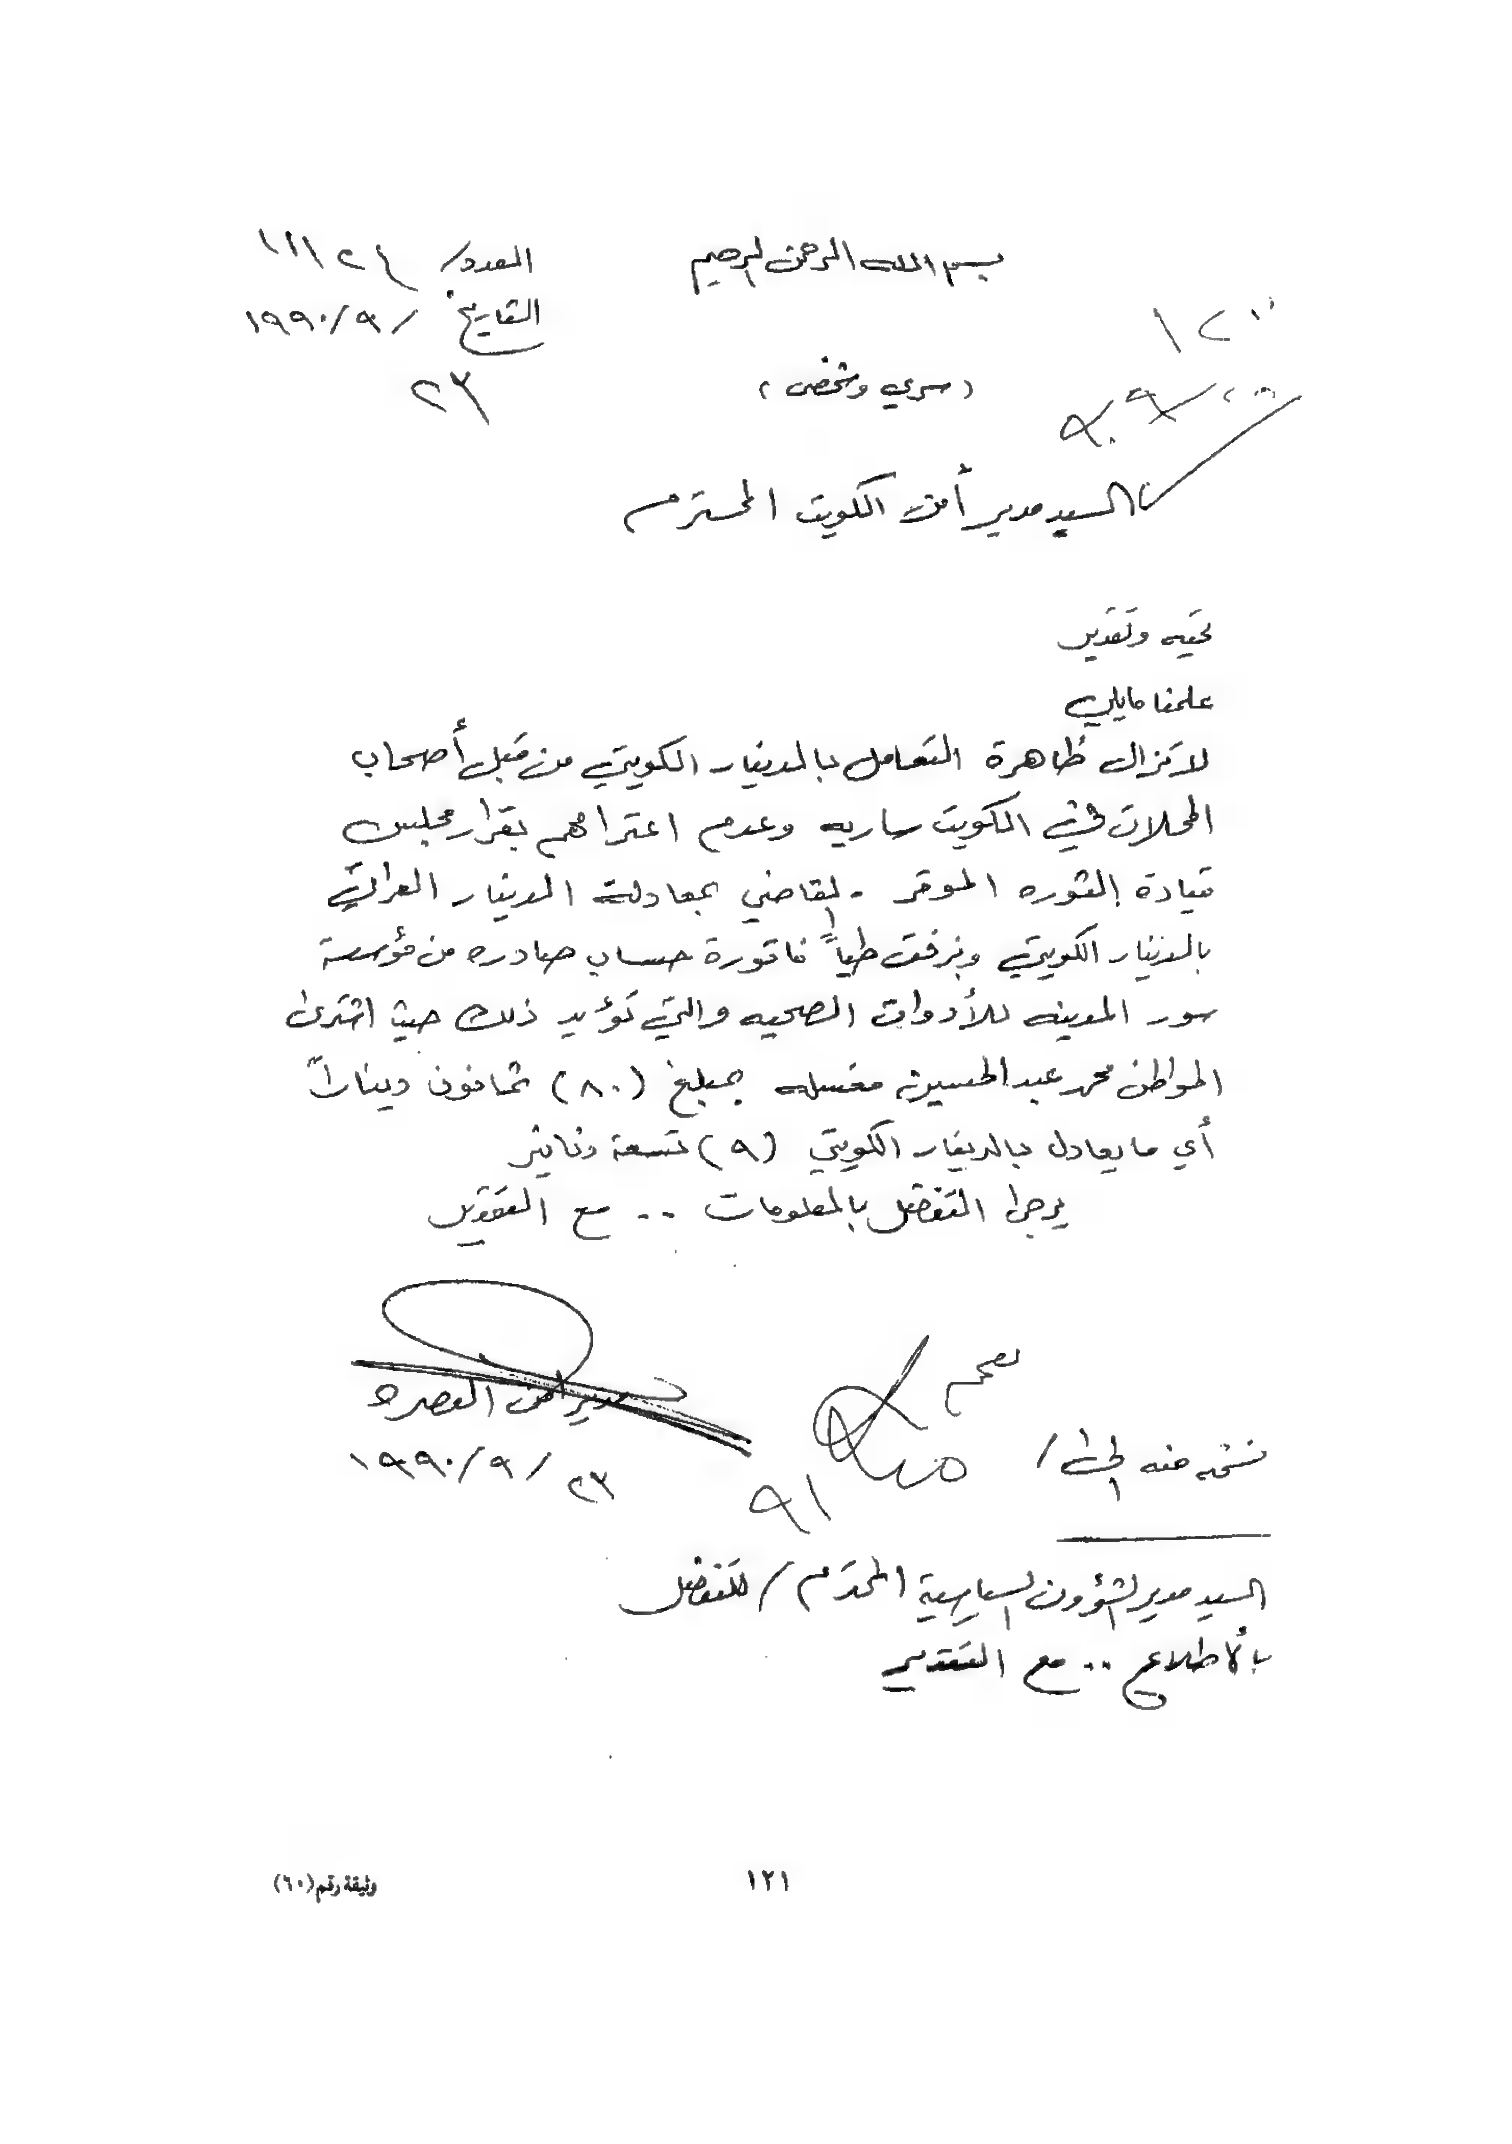 بسم الله الرحمن الرحيم
العدد/
التاريخ / ٩/ ١٩٩٠
٢٣
(سري وشخصي)
السيد مدير أمن الكويت المحترم
تحيه وتقدير
علمنا مايلي
لا تزال ظاهرة التعامل بالدينار الكويتي من قبل أصحاب
المحلات في الكويت ساريه وعدم اعترافهم بقرار مجلس
قيادة الثوره الموقر - القاضي بمعادلة الدينار العراقي
بالدينار الكويتي ونرفق طياً فاتورة حساب صادره من مؤسسة
سور المدينه للأدوات الصحيه والتي تؤيد ذلك حيث اشترى
المواطن محمد عبد الحسين مغسله بمبلغ (٨٠) ثمانون ديناراً
أي ما يعادل بالدينار الكويتي (٩) تسعة دنانير
يرجى التفضل بالمعلومات .. مع التقدير
مدير أمن
٢٣ / ٩ / ١٩٩٠
نسخه منه الى /
السيد مدير الشؤون السياسية المحترم / للتفضل
بالأطلاع .. مع التقدير
١٢١
وثيقة رقم (٦٠)